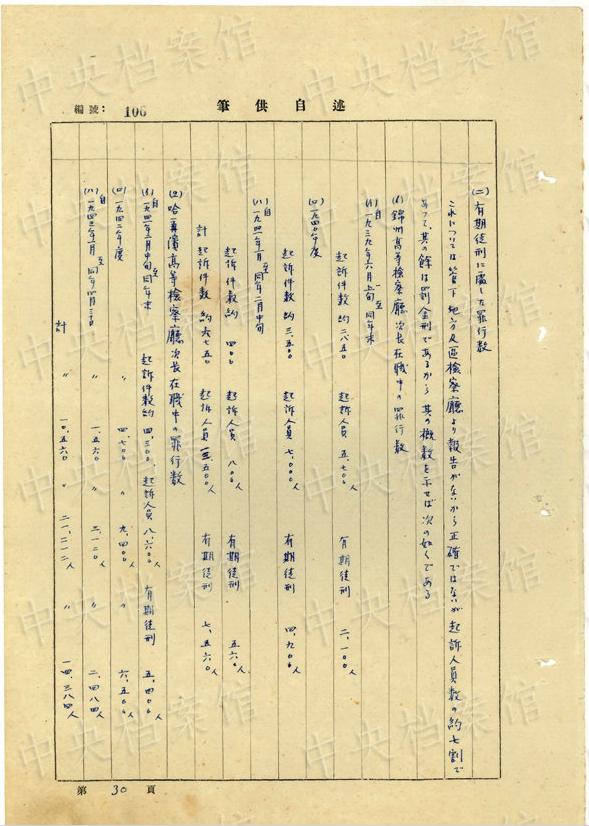 編號: 106
述自供筆
(二) 有期徒刑に處した罪行数
これについては管下地方及区検察廳より報告がないから正確ではないが起訴人員数の約七割で
あつて、其の餘は罰金刑であるから其の概数を示せば次の如くである
錦州高等検察廳次長在職中の罪行数
(イ) 自一九三九年六月上旬 至同年末
起訴件数約二八五〇 起訴人員五、七〇〇人 有期徒刑 二、一〇〇人
(ロ) 一九四〇年度
起訴件数約三、五〇〇 起訴人員七、〇〇〇人 有期徒刑 四、九〇〇人
(ハ) 自一九四一年一月 至同年二月中旬
起訴件数約 四〇〇 起訴人員 八〇〇人 有期徒刑 五六〇人
計 起訴件数約六七五〇 起訴人員 三、五〇〇人 有期徒刑 七、五六〇人
(2) 哈爾濱高等検察廳次長在職中の罪行数
(イ) 自一九四一年二月中旬 至同年末 起訴件数約四、三〇〇 起訴人員八、六〇〇人 有期徒刑 五、四〇〇人
(ロ) 一九四二年度 〃 四、七〇〇 〃 九、四〇〇人 〃 六、五〇〇人
(ハ) 自一九四三年一月 至同年四月三十日 〃 一、五六〇 〃 三、一二〇人 〃 二、四八四人
計 〃 一〇、五六〇 〃 二一、一二〇人 〃 一四、三八四人
第 30 頁
中央档案馆